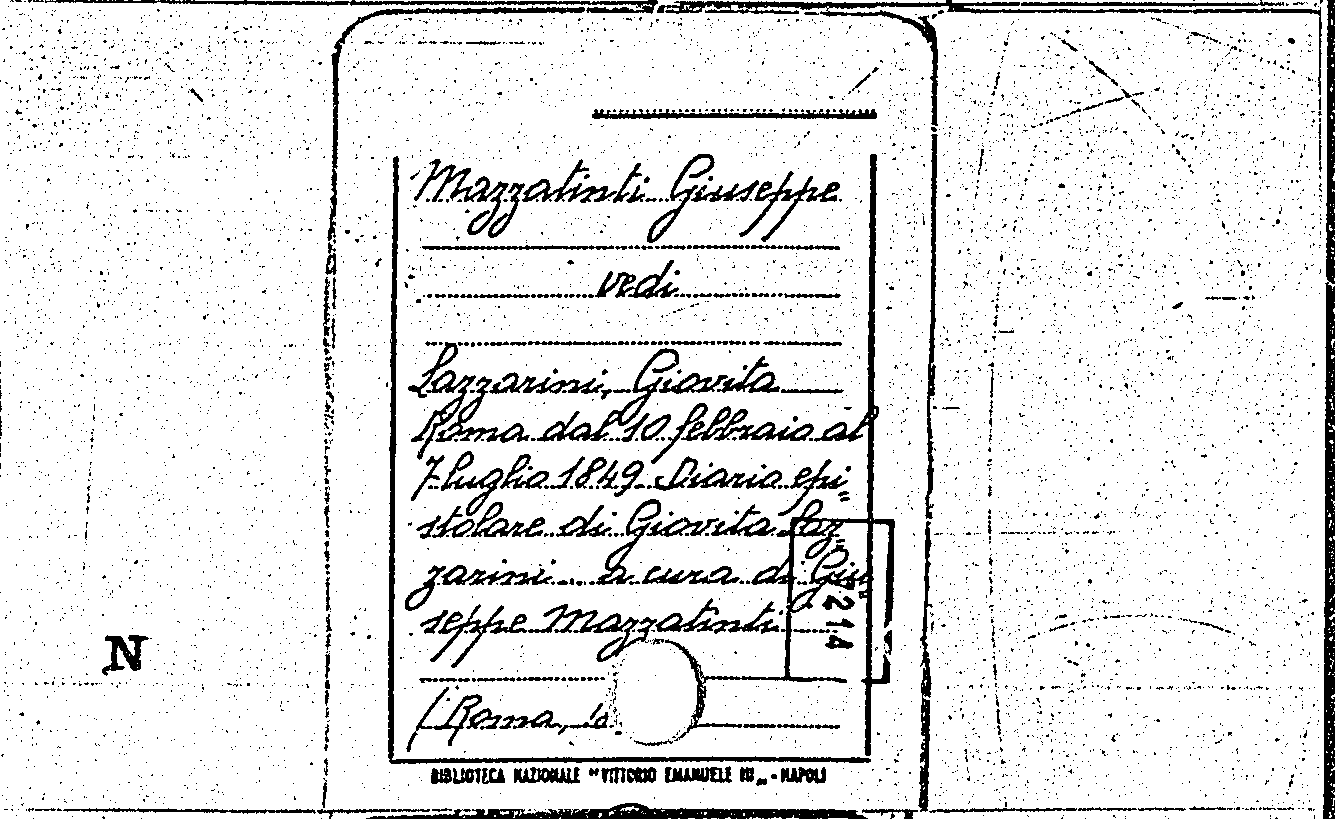 Mazzatinti Giuseppe
vedi
Lazzarini, Giovita
Roma dal 10 febbraio al
7 luglio 1849. Diario epi=
stolare di Giovita Laz=
zarini... a cura di Giu=
seppe Mazzatinti
(Roma,
7214
N
BIBLIOTECA NAZIONALE "VITTORIO EMANUELE III" - NAPOLI